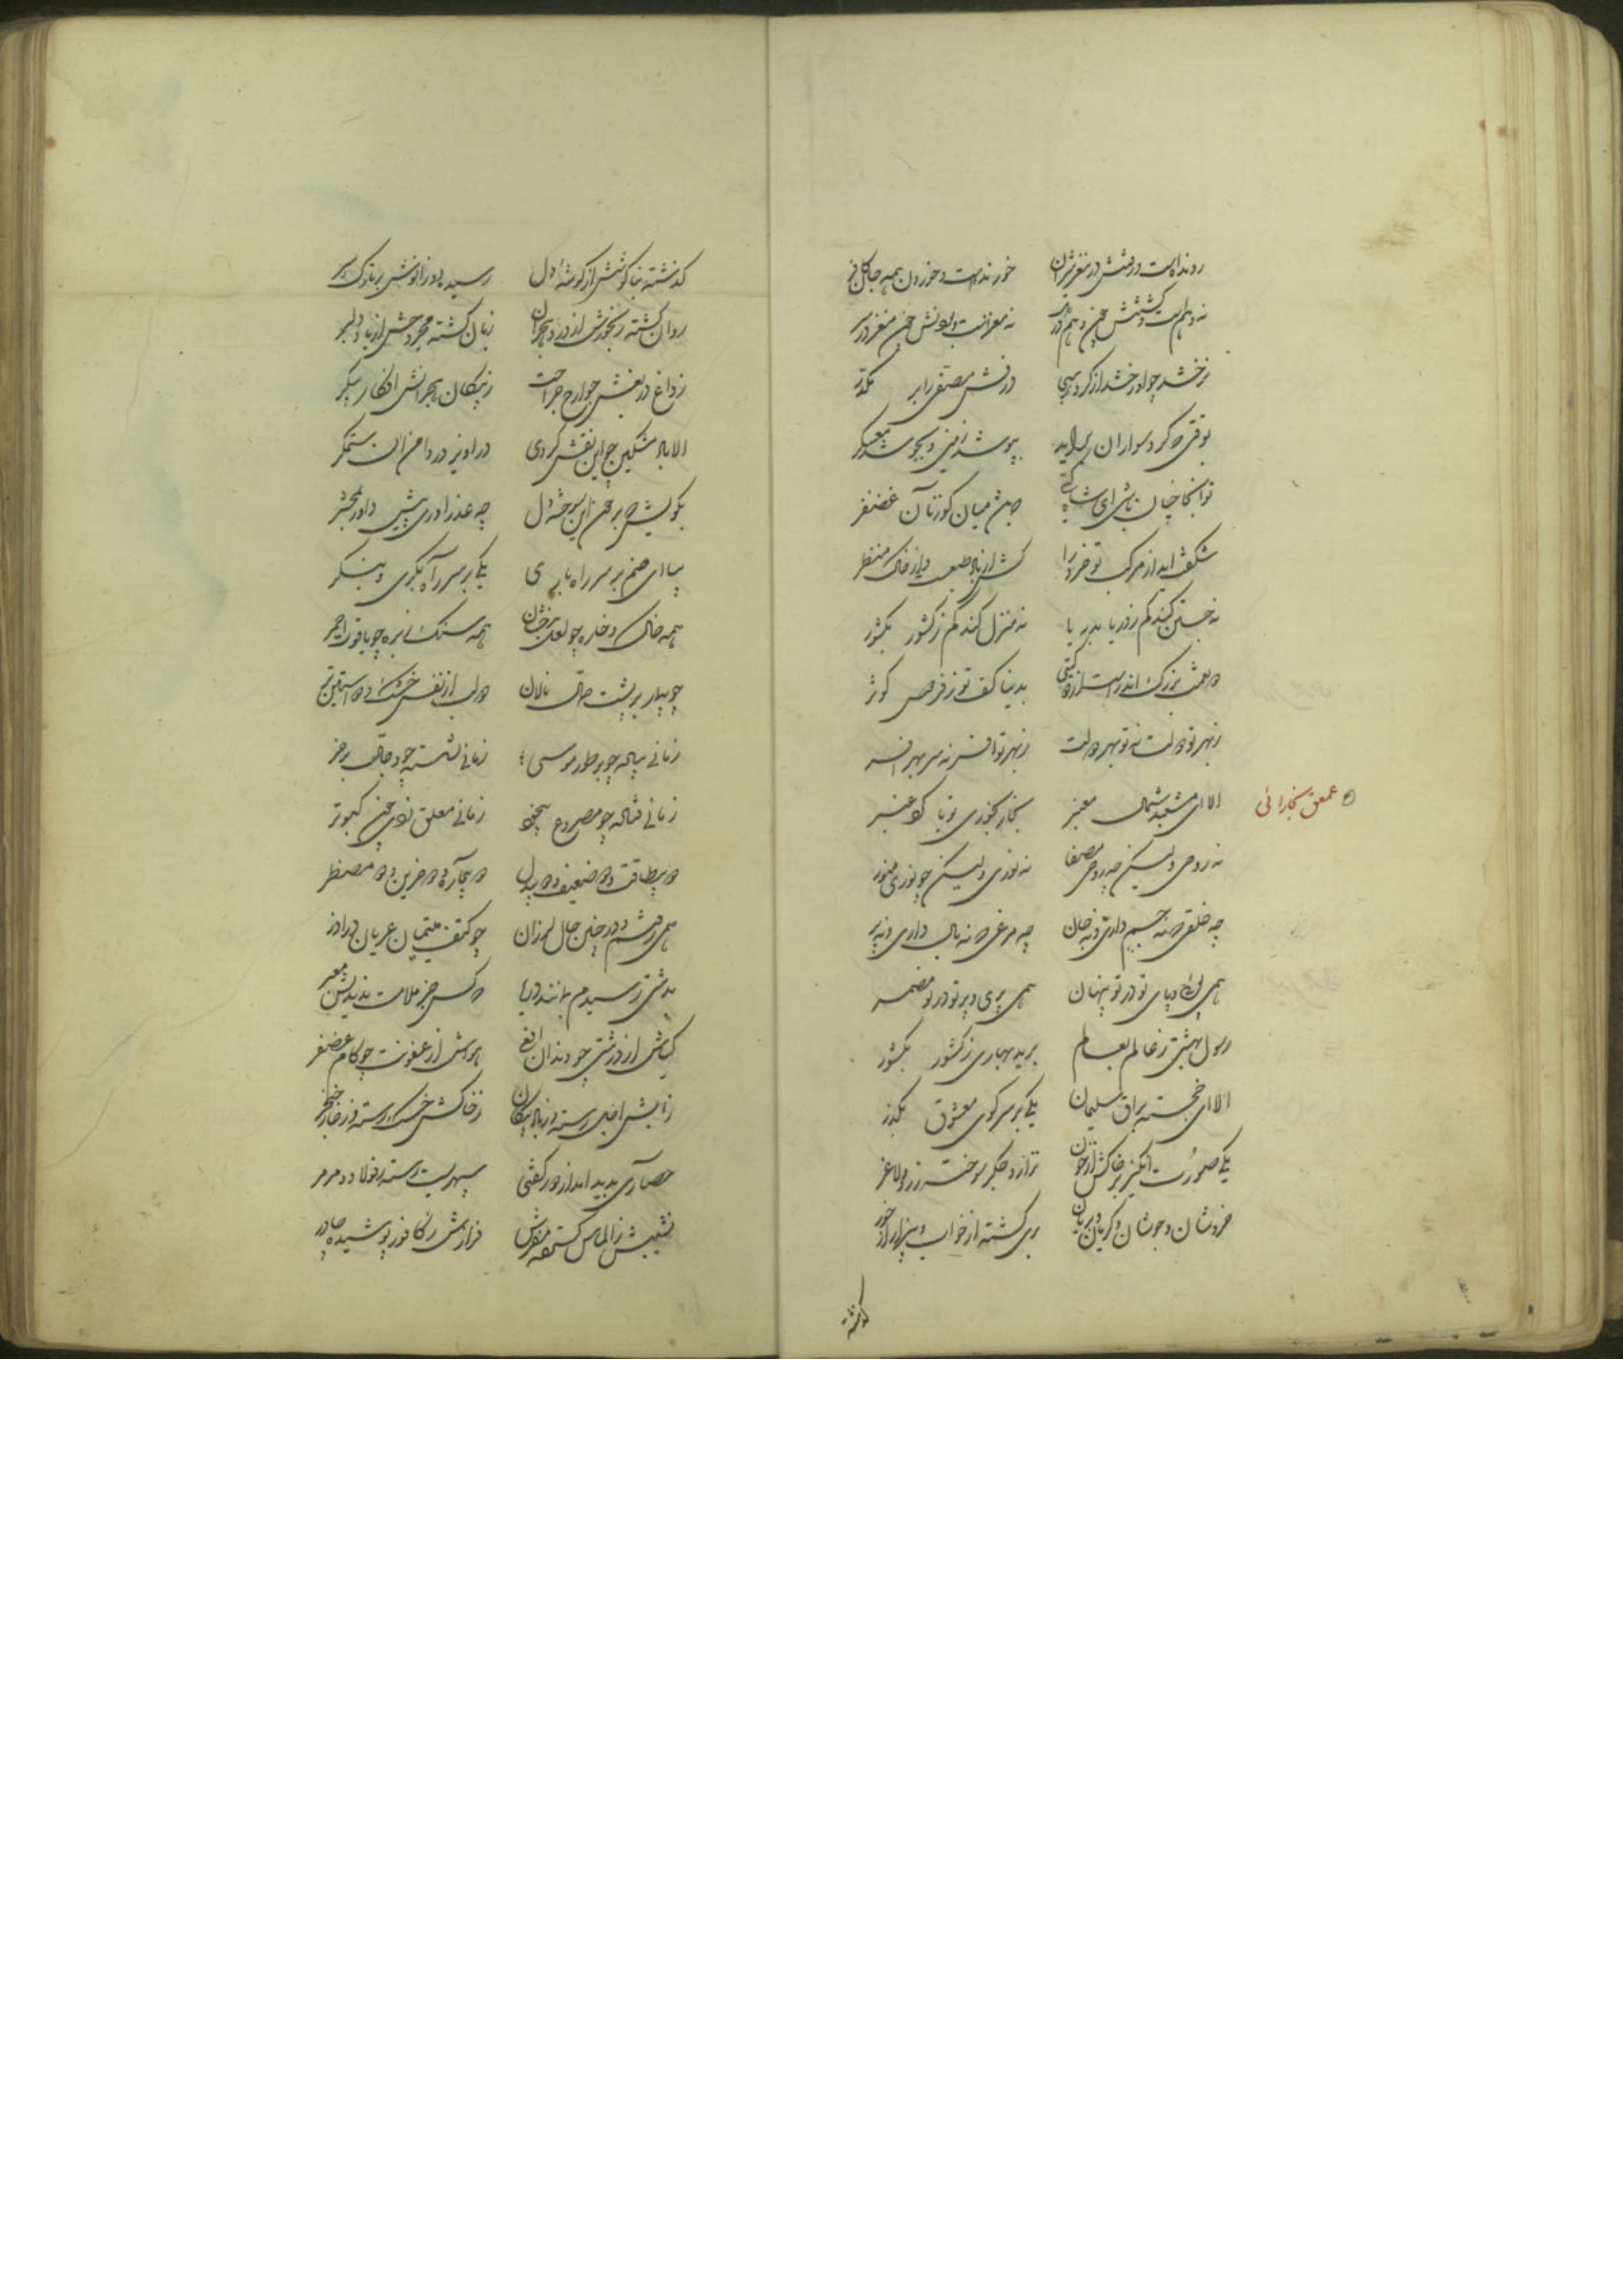 رونده است و رفتنش در مغز شیران خورنده است و خوردن همه جان کافر
نه وهم است و گشتنش چون وهم در دل نه مغز است و بودنش چون مغز در سر
درخشد چو او رخشد از گرد
بپوشد زمین و بجوشد معسکر
تو آنجا چنان باشی ای شاه که باشد میان گوزنان غضنفر
شگفت آید از مرکب تو خرد را کش از باد طبعست و از خاک منظر
نه جستن کند کم ز دریا بدریا نه منزل کند کم ز کشور بکشور
ز بهر تو دولت نه تو بهر دولت ز بهر تو افسر نه سر بهر افسر
عمعق بخارائی
الا ای مشعبد شمال معنبر بخار بخوری تو یا گرد عنبر
نه روحی ولیکن چو روحی مصفا نه نوری ولیکن چو نوری منور
چه خلقی که نه جسم داری و نه جان چه مرغی که نه بال داری و نه پر
همی پوئی و پای تو در تو پنهان همی پری و پر تو در تو مضمر
رسول بهشتی ز عالم بعالم برید بهاری ز کشور بکشور
الا ای خجسته براق سلیمان یکی بر سر کوی معشوق بگذر
یکی صورت انگیز بر خاکش از خون نزار و جگر سوخته زرد و لاغر
خروشان و جوشان و گریان و بریان بری گشته از خواب و بیزار از خور
گذشته
گذشته بناگوشش از گوشه دل رسیده دو زانوش بر تارک سر
روان گشته رنجورش از درد هجران زبان گشته مجروحش از یاد دلبر
ز داغ دریغش جوارح جراحت ز پیکان هجرانش افکار پیکر
الا باد مشکین چو این نقش کردی در آویز در دامن آن ستمگر
بگویش که بر خون این سوخته دل چه عذر آوری پیش داور بمحشر
بیا ای صنم بر سر راه باری یکی بر سر راه بگری و بنگر
همه خاک و خاره چو لعل بدخشان همه سنگ ریزه چو یاقوت احمر
چو بیمار بر پشت حال نالان دو لب از نفس خشک و دو آستین تر
زمانی بیاله چو بر طور موسی زمانی نشسته چو دجال بر خر
زمانی فتاده چو مصروع بیخود زمانی معلق زدن چون کبوتر
دو بیطاقت و دو ضعیف و دو بیدل دو بیچاره دو حزین دو مضطر
همی رفتم و در چنین حال لرزان چو کتف یتیمان عریان در آذر
بدشتی رسیدم مانند دریا که کس جز ملامت ندیدش معبر
گیاش از درشتی چو دندان افعی هواش از عفونت چو کام غضنفر
ز آبش اجل رسته وز باد پیکان ز خاکش خسک رسته وز خار خنجر
حصاری پدید آمد از دور گفتی سپهریست رسته ز فولاد و مرمر
نشیبش ز الماس گسترده مفرش فرازش ز کافور پوشیده چادر